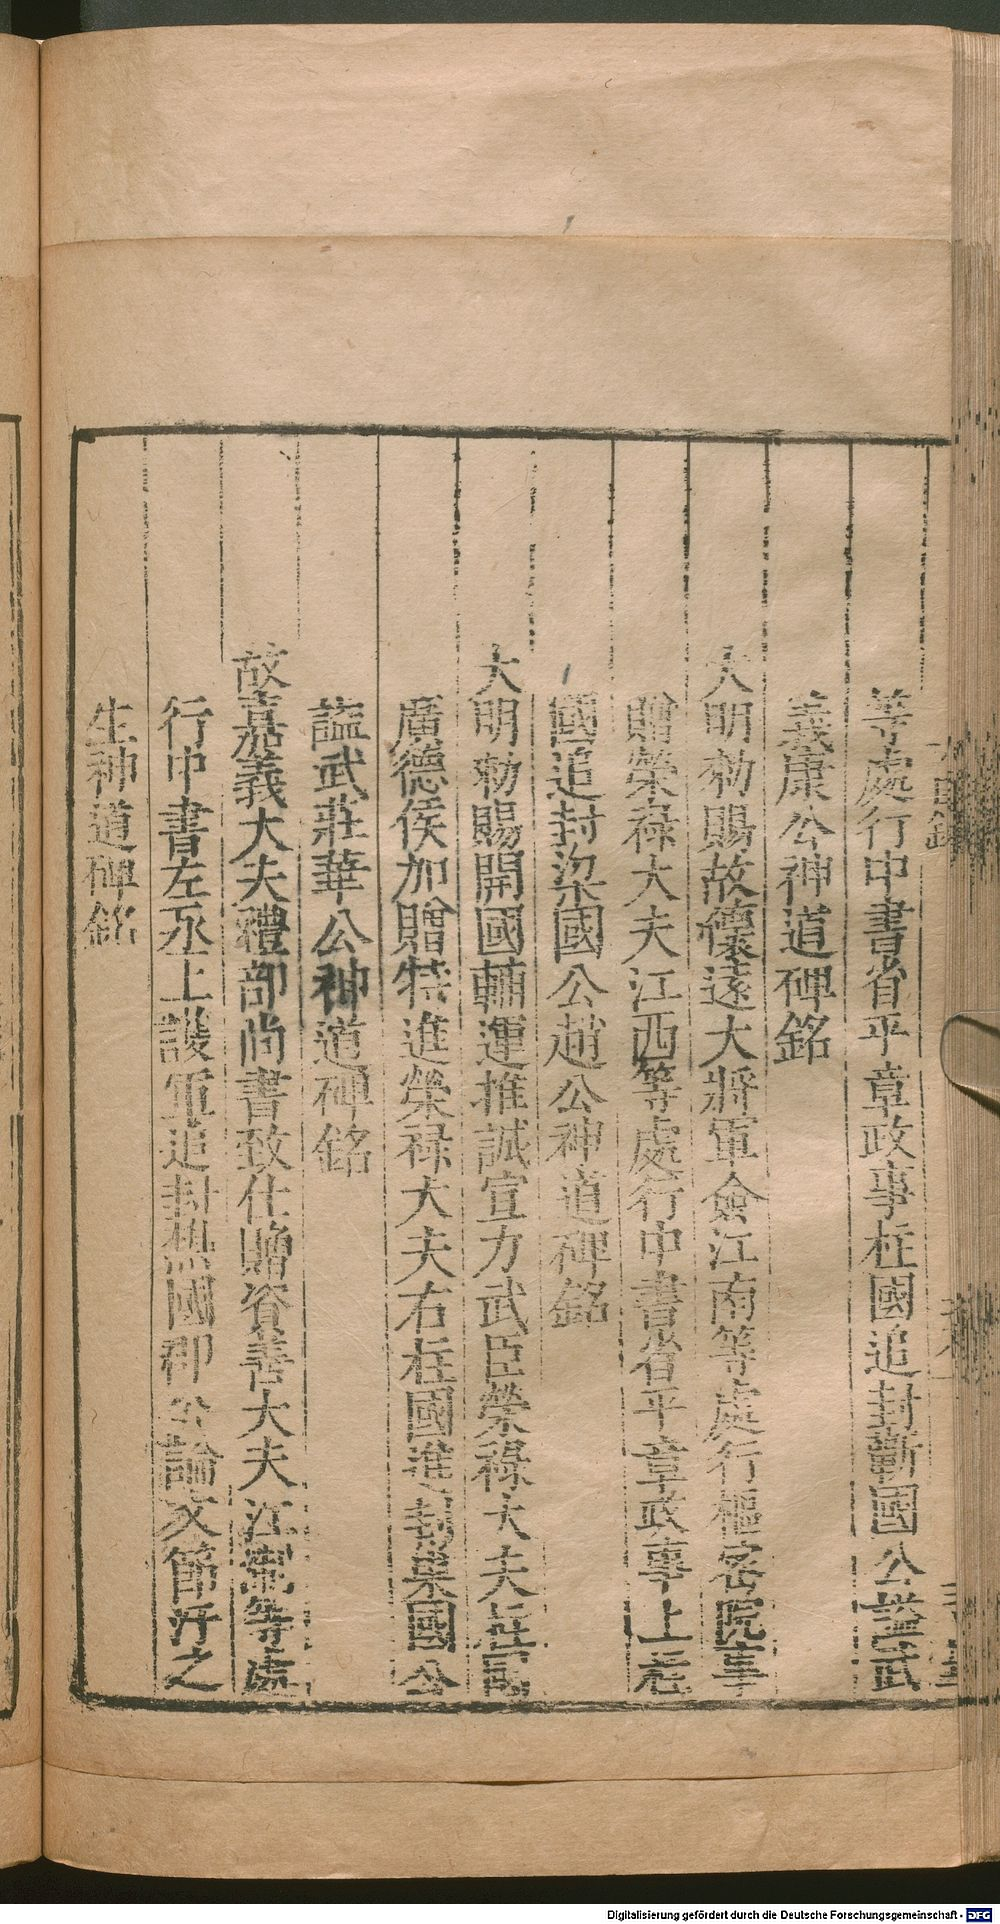 等處行中書省平章政事柱國追封蘄國公謚武
義康公神道碑銘
大明勑賜故懷遠大將軍僉江南等處行樞密院事
贈榮祿大夫江西等處行中書省平章政事上柱
國追封梁國公趙公神道碑銘
大明勑賜開國輔運推誠宣力武臣榮祿大夫柱國
廣德侯加贈特進榮祿大夫右柱國進封巢國公
謚武莊華公神道碑銘
故嘉義大夫禮部尚書致仕贈資善大夫江浙等處
行中書左丞上護軍追封國郡公諭文節汪之
生神道碑銘
Digitalisierung gefördert durch die Deutsche Forschungsgemeinschaft - DFG